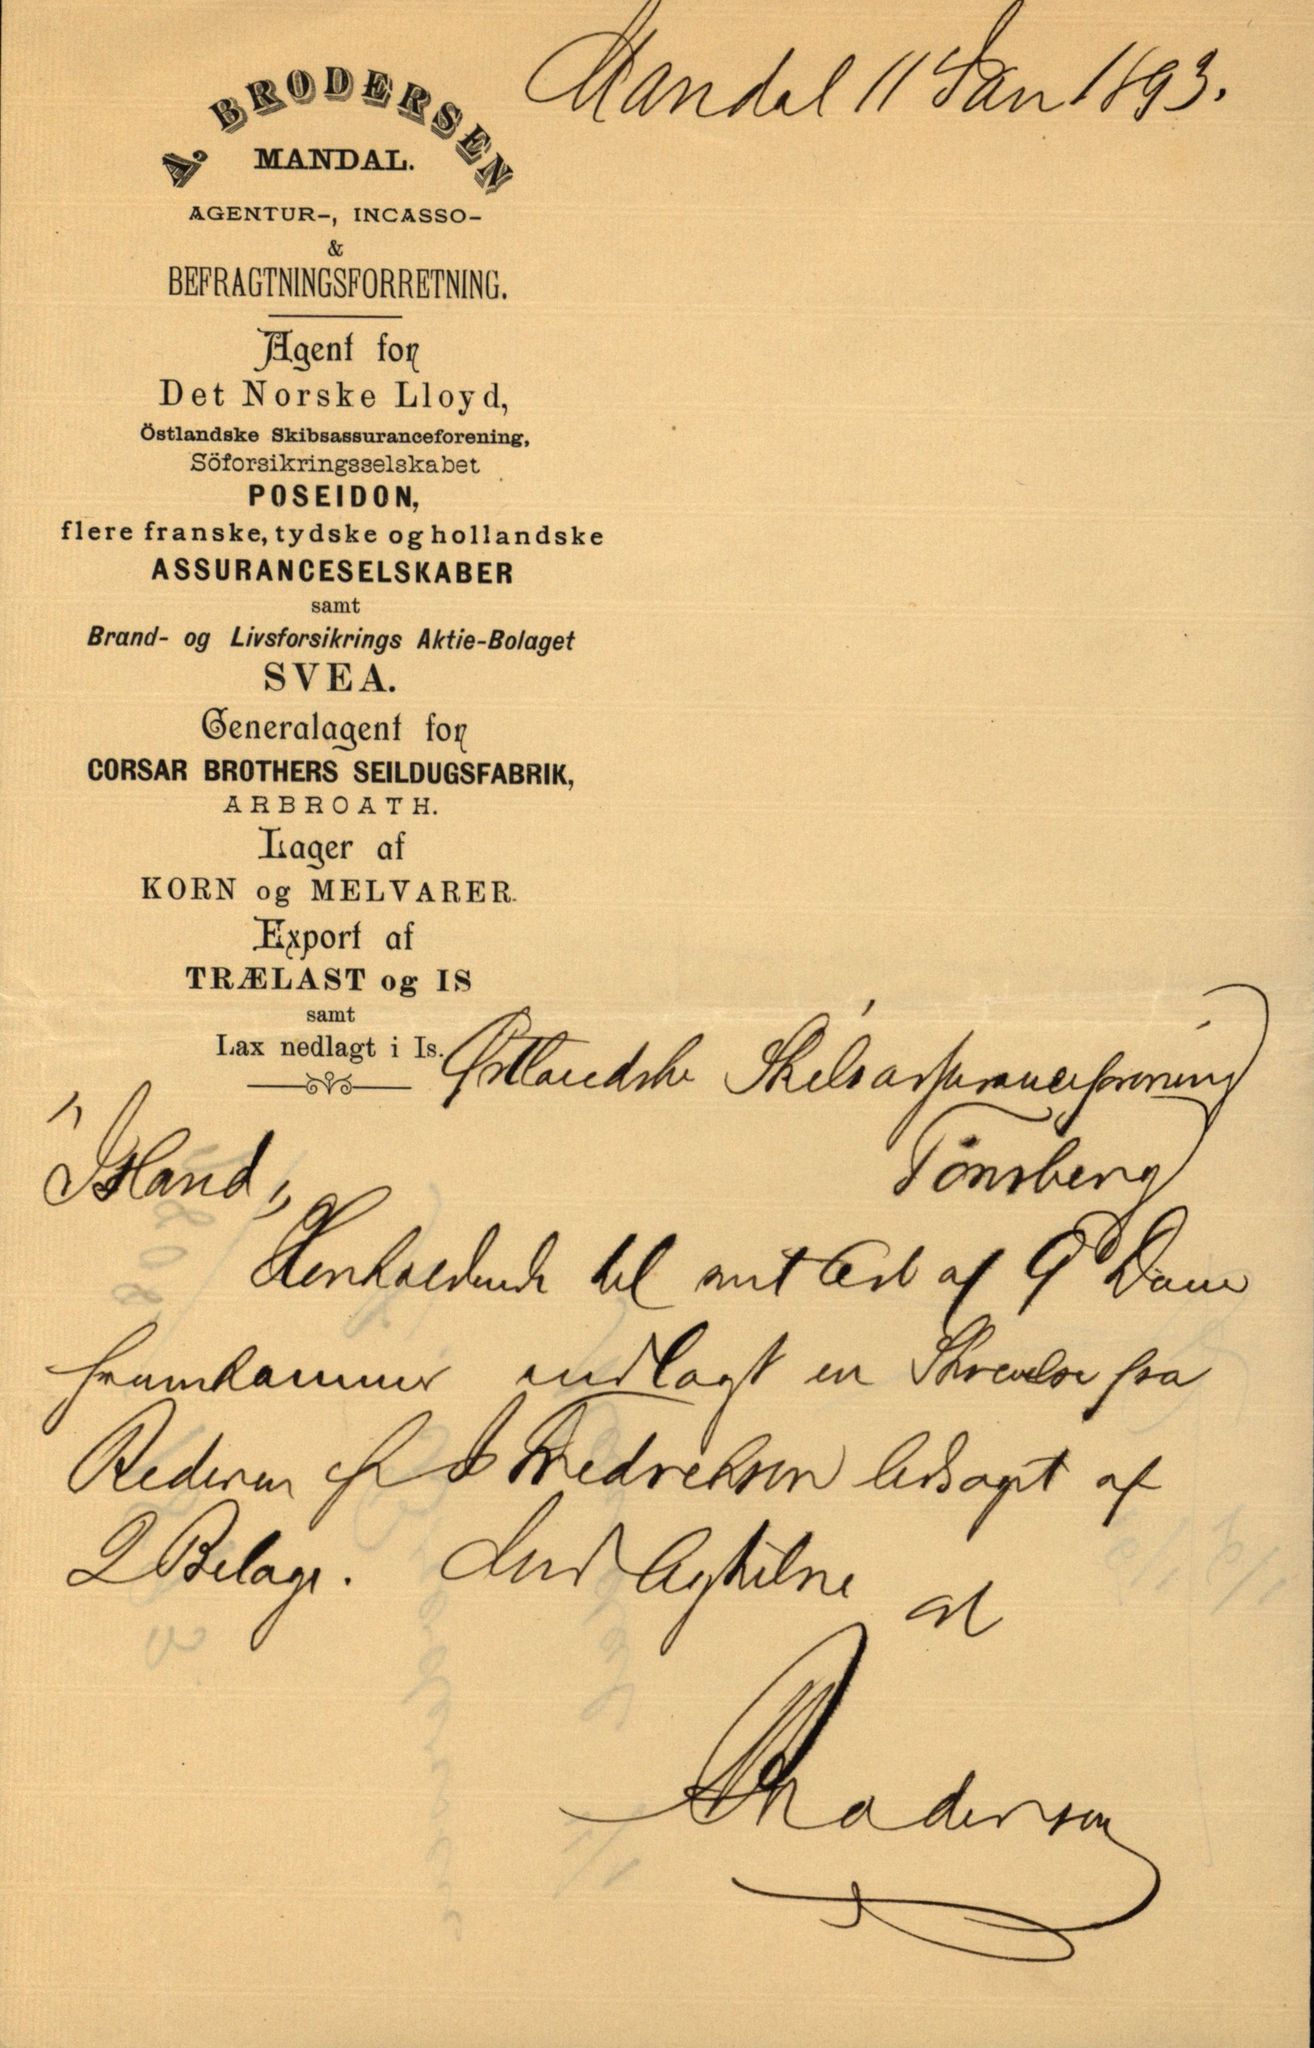 Mandal 11 Jan 1893.
A. BRODERSEN
MANDAL.
AGENTUR-, INCASSO-
&
BEFRAGTNINGSFORRETNING.
Agent for
Det Norske Lloyd,
Östlandske Skibsassuranceforening,
Söforsikringsselskabet
POSEIDON,
flere franske, tydske og hollandske
ASSURANCESELSKABER
samt
Brand- og Livsforsikrings Aktie-Bolaget
SVEA.
Generalagent for
CORSAR BROTHERS SEILDUGSFABRIK,
ARBROATH.
Lager af
KORN og MELVARER.
Export af
TRÆLAST og IS
samt
Lax nedlagt i Is.
Østlandske Skibsassuranceforening
Tönsberg
"Island"
Henholdende til mit af 9 d
fremkommer indlagt en Skrivelse fra
Rederen Fredriksen ledsaget af
2 Bilage. Med Agtelse
A Brodersen